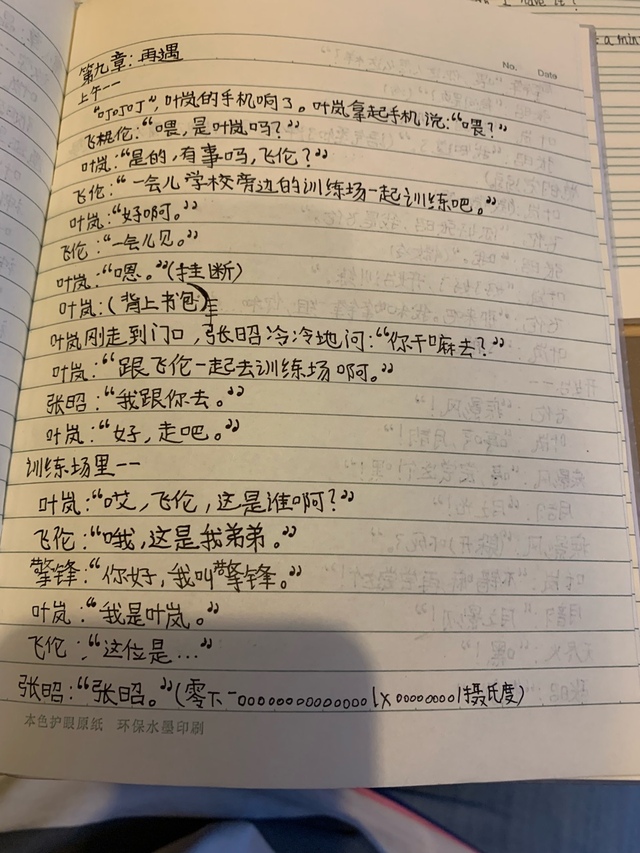 n I have it?
e a min
No. Date
第九章：再遇
上午——
“叮叮叮”，叶岚的手机响了。叶岚拿起手机说：“喂？”
飞伦：“喂，是叶岚吗？”
叶岚：“是的，有事吗，飞伦？”
飞伦：“一会儿学校旁边的训练场一起训练吧。”
叶岚：“好啊。”
飞伦：“一会儿见。”
叶岚：“嗯。”（挂断）
叶岚：（背上书包）
叶岚刚走到门口，张昭冷冷地问：“你干嘛去？”
叶岚：“跟飞伦一起去训练场啊。”
张昭：“我跟你去。”
叶岚：“好，走吧。”
训练场里——
叶岚：“哎，飞伦，这是谁啊？”
飞伦：“哦，这是我弟弟。”
擎锋：“你好，我叫擎锋。”
叶岚：“我是叶岚。”
飞伦：“这位是...”
张昭：“张昭。”（零下-00000000000000001x000000001摄氏度）
本色护眼原纸 环保水墨印刷